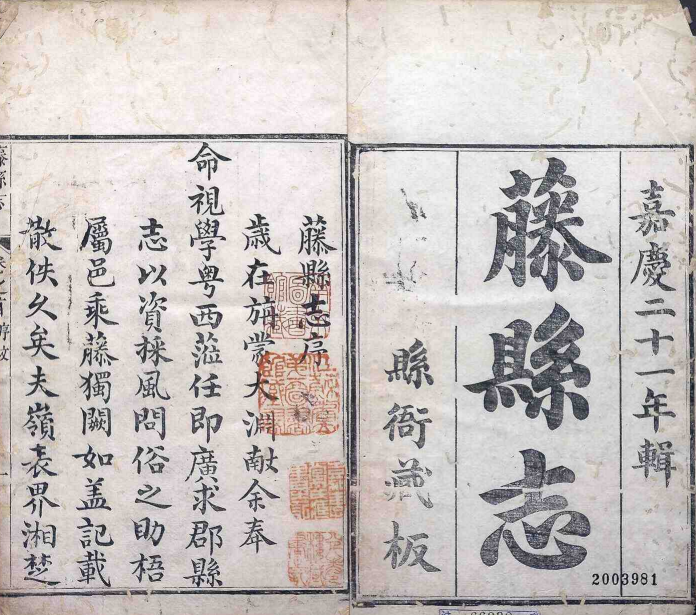 嘉慶二十一年輯
藤縣志
縣衙藏板
2003981
藤縣志序
歲在旃蒙大淵献余奉
命視學粤西蒞任即廣求郡縣
志以資採風問俗之助梧
屬邑乘藤獨闕如盖記載
散佚久矣夫嶺表界湘楚
藤縣志